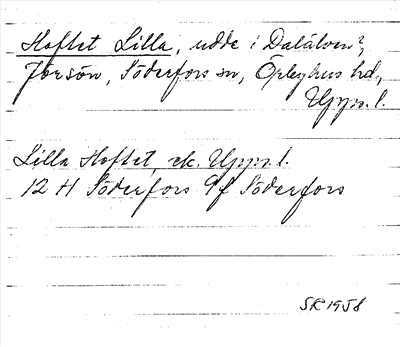 Hoftet Lilla, udde i Dalälven?,
Jörsön, Söderfors sn, Örbyhus hd,
Upps. l.
Lilla Hoftet, ek. Upps. l.
12 H Söderfors Sf Söderfors
SR 1958